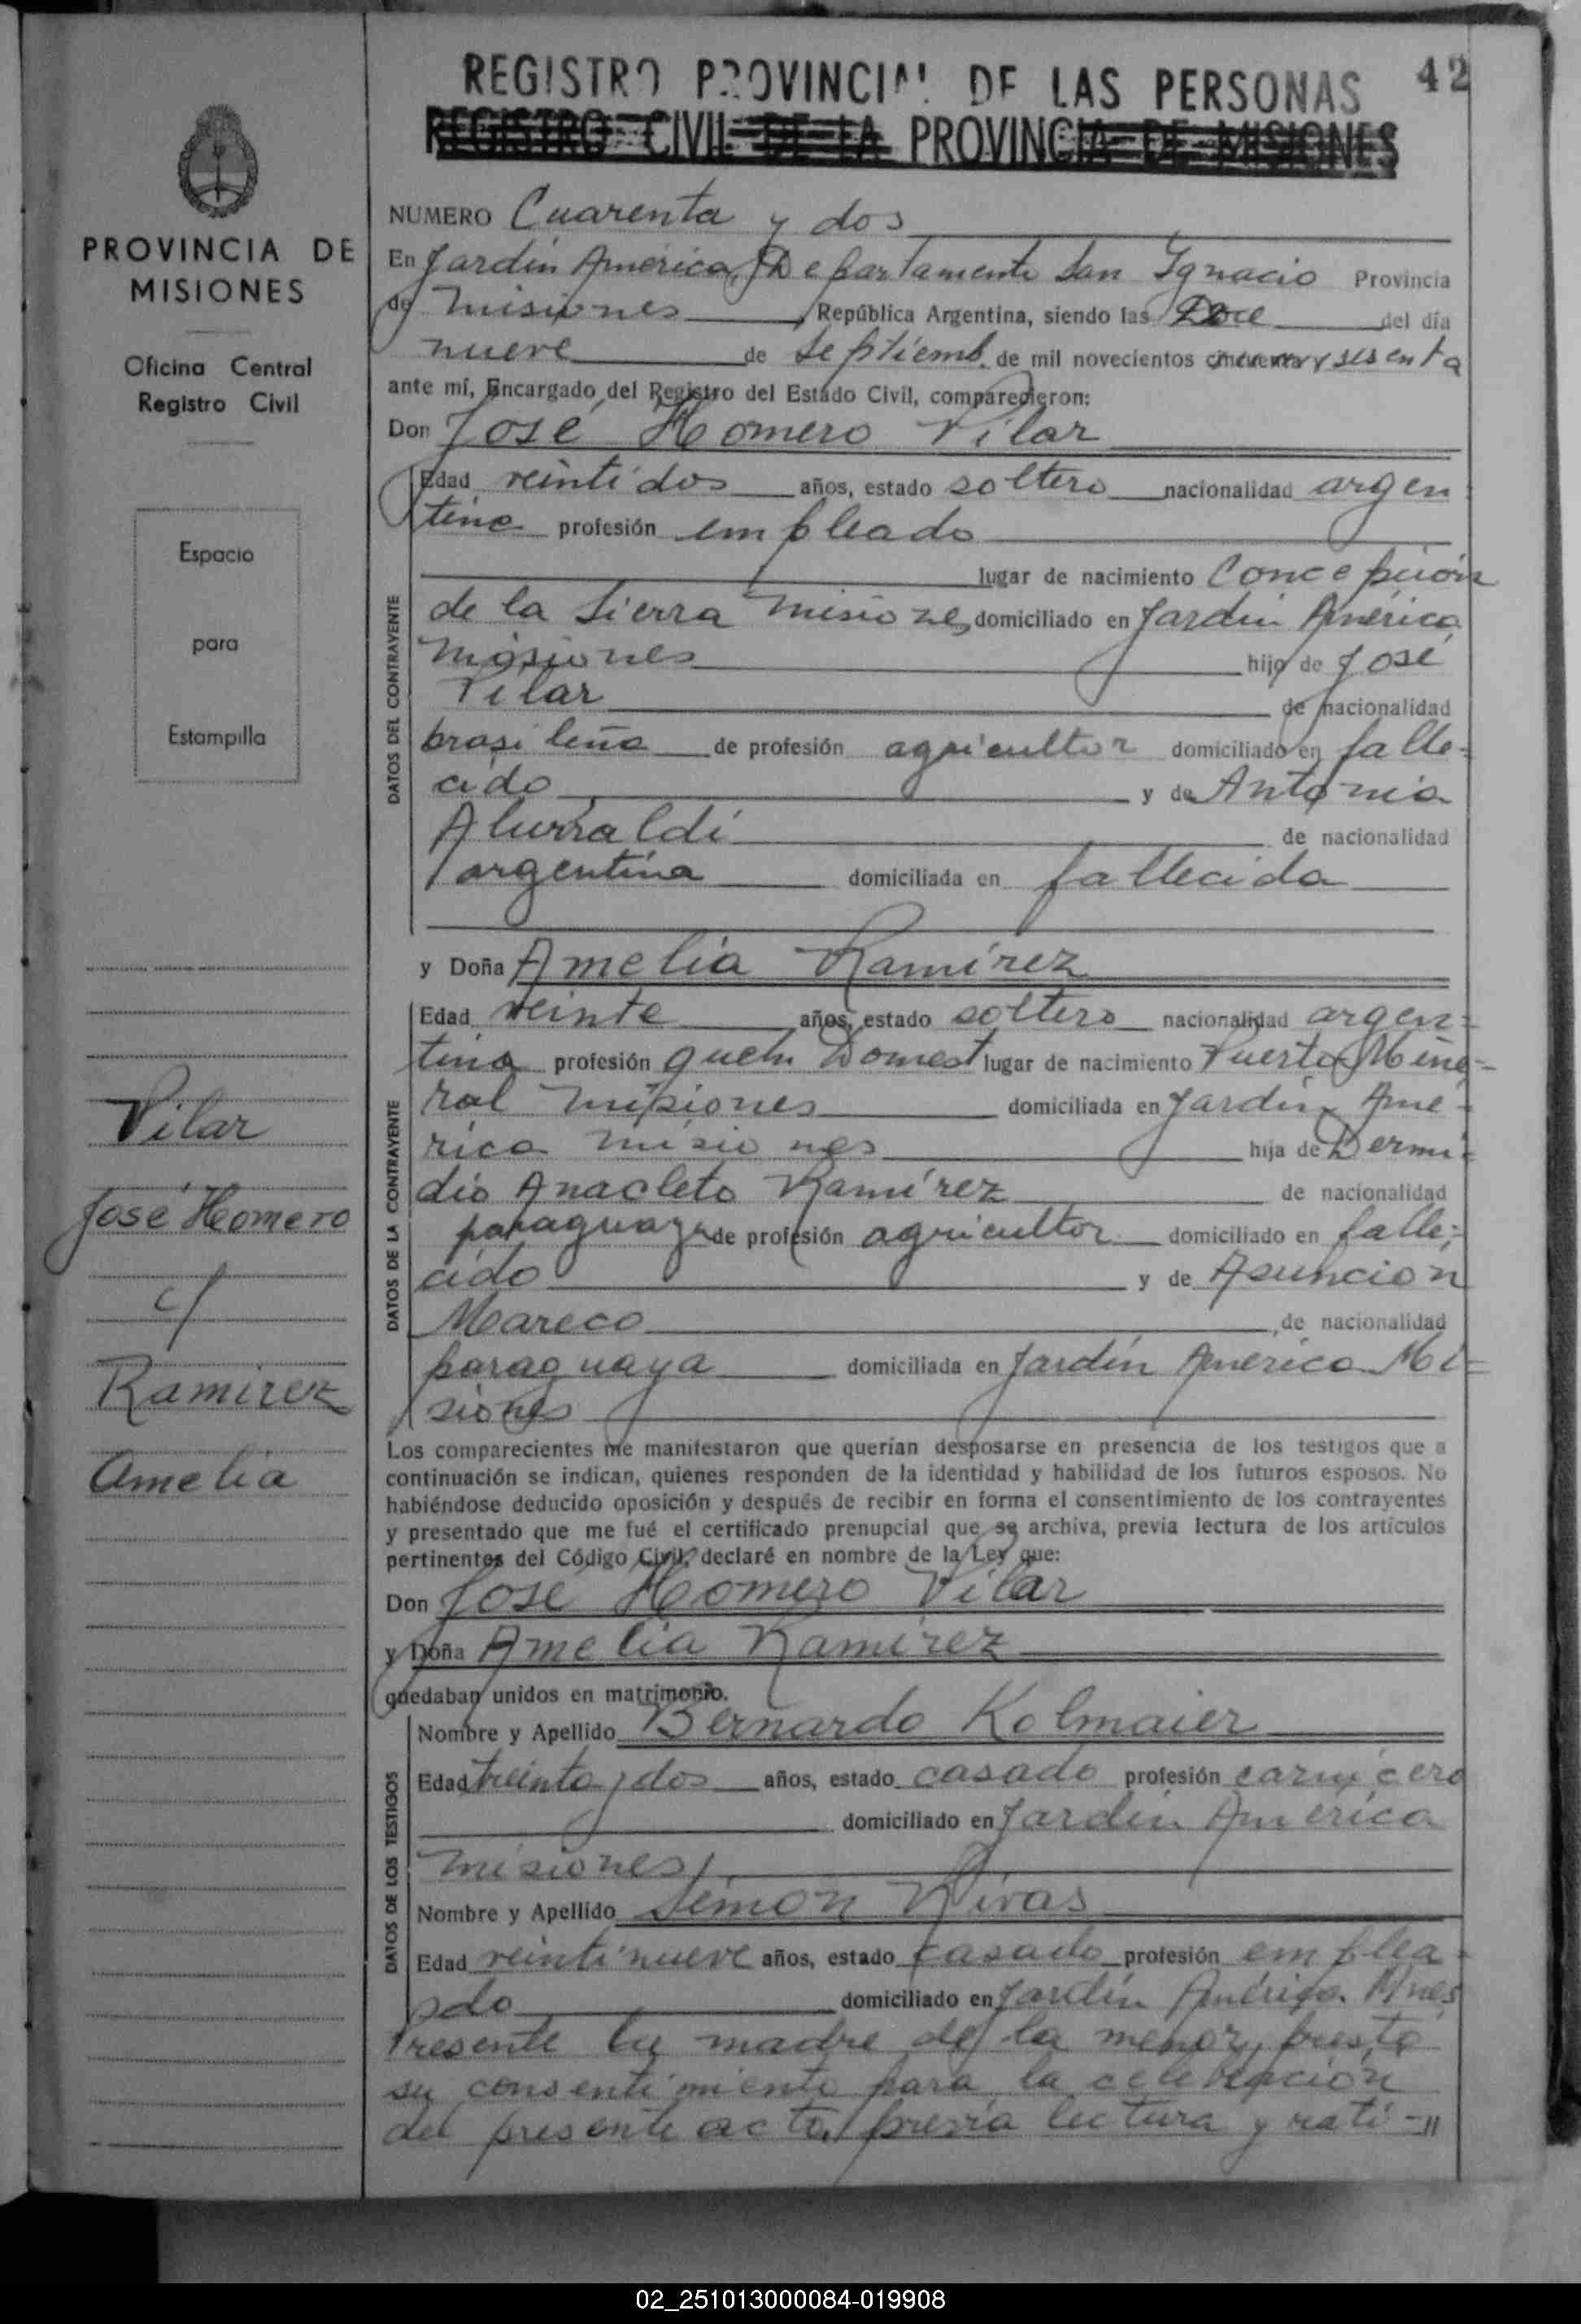 REGISTRO PROVINCIAL DE LAS PERSONAS 42
REGISTRO CIVIL DE LA PROVINCIA DE MISIONES
PROVINCIA DE
MISIONES
Oficina Central
Registro Civil
Espacio
para
Estampilla
Vilar
José Homero
y
Ramirez
Amelia
NUMERO Cuarenta y dos
En Jardín América, Departamento San Ignacio Provincia
de Misiones República Argentina, siendo las Doce del día
nueve de Septiemb. de mil novecientos y sesenta
ante mí, Encargado del Registro del Estado Civil, comparecieron:
Don José Homero Vilar
DATOS DEL CONTRAYENTE
Edad veintidos años, estado soltero nacionalidad argen
tina profesión empleado
lugar de nacimiento Concepción
de la Sierra Misiones domiciliado en Jardín América
Misiones hijo de José
Vilar de nacionalidad
brasileña de profesión agricultor domiciliado en falle=
cido y de Antonia
de nacionalidad
argentina domiciliada en fallecida
y Doña Amelia Ramírez
DATOS DE LA CONTRAYENTE
Edad veinte años, estado soltera nacionalidad argen=
tina profesión queh Domest lugar de nacimiento Puerto Mine=
ral Misiones domiciliada en Jardín Amé-
rica Misiones hija de Dermi=
dio Anacleto Ramírez de nacionalidad
paraguaya de profesión agricultor domiciliado en falle=
cido y de Asunción
Mareco de nacionalidad
paraguaya domiciliada en Jardín América Mi=
siones
Los comparecientes me manifestaron que querían desposarse en presencia de los testigos que a
continuación se indican, quienes responden de la identidad y habilidad de los futuros esposos. No
habiéndose deducido oposición y después de recibir en forma el consentimiento de los contrayentes
y presentado que me fué el certificado prenupcial que se archiva, previa lectura de los artículos
pertinentes del Código Civil, declaré en nombre de la Ley que:
Don José Homero Vilar
y Doña Amelia Ramírez
quedaban unidos en matrimonio.
DATOS DE LOS TESTIGOS
Nombre y Apellido Bernardo Kolmaier
Edad treinta y dos años, estado casado profesión carnicero
domiciliado en Jardín América
Misiones
Nombre y Apellido Simón Rivas
Edad veintinueve años, estado casado profesión emplea-
do domiciliado en Jardín América Mnes
Presente la madre de la menor, prestó
su consentimiento para la celebración
del presente acto, previa lectura y rati-//
02_251013000084-019908